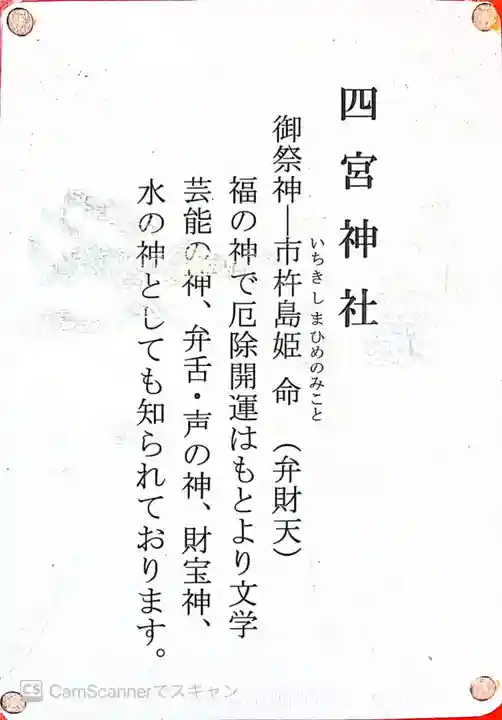 四宮神社
御祭神―市杵島姫 命 （弁財天）
いちきしまひめのみこと
福の神で厄除開運はもとより文学
芸能の神、弁舌・声の神、財宝神、
水の神としても知られております。
CS CamScannerでスキャン